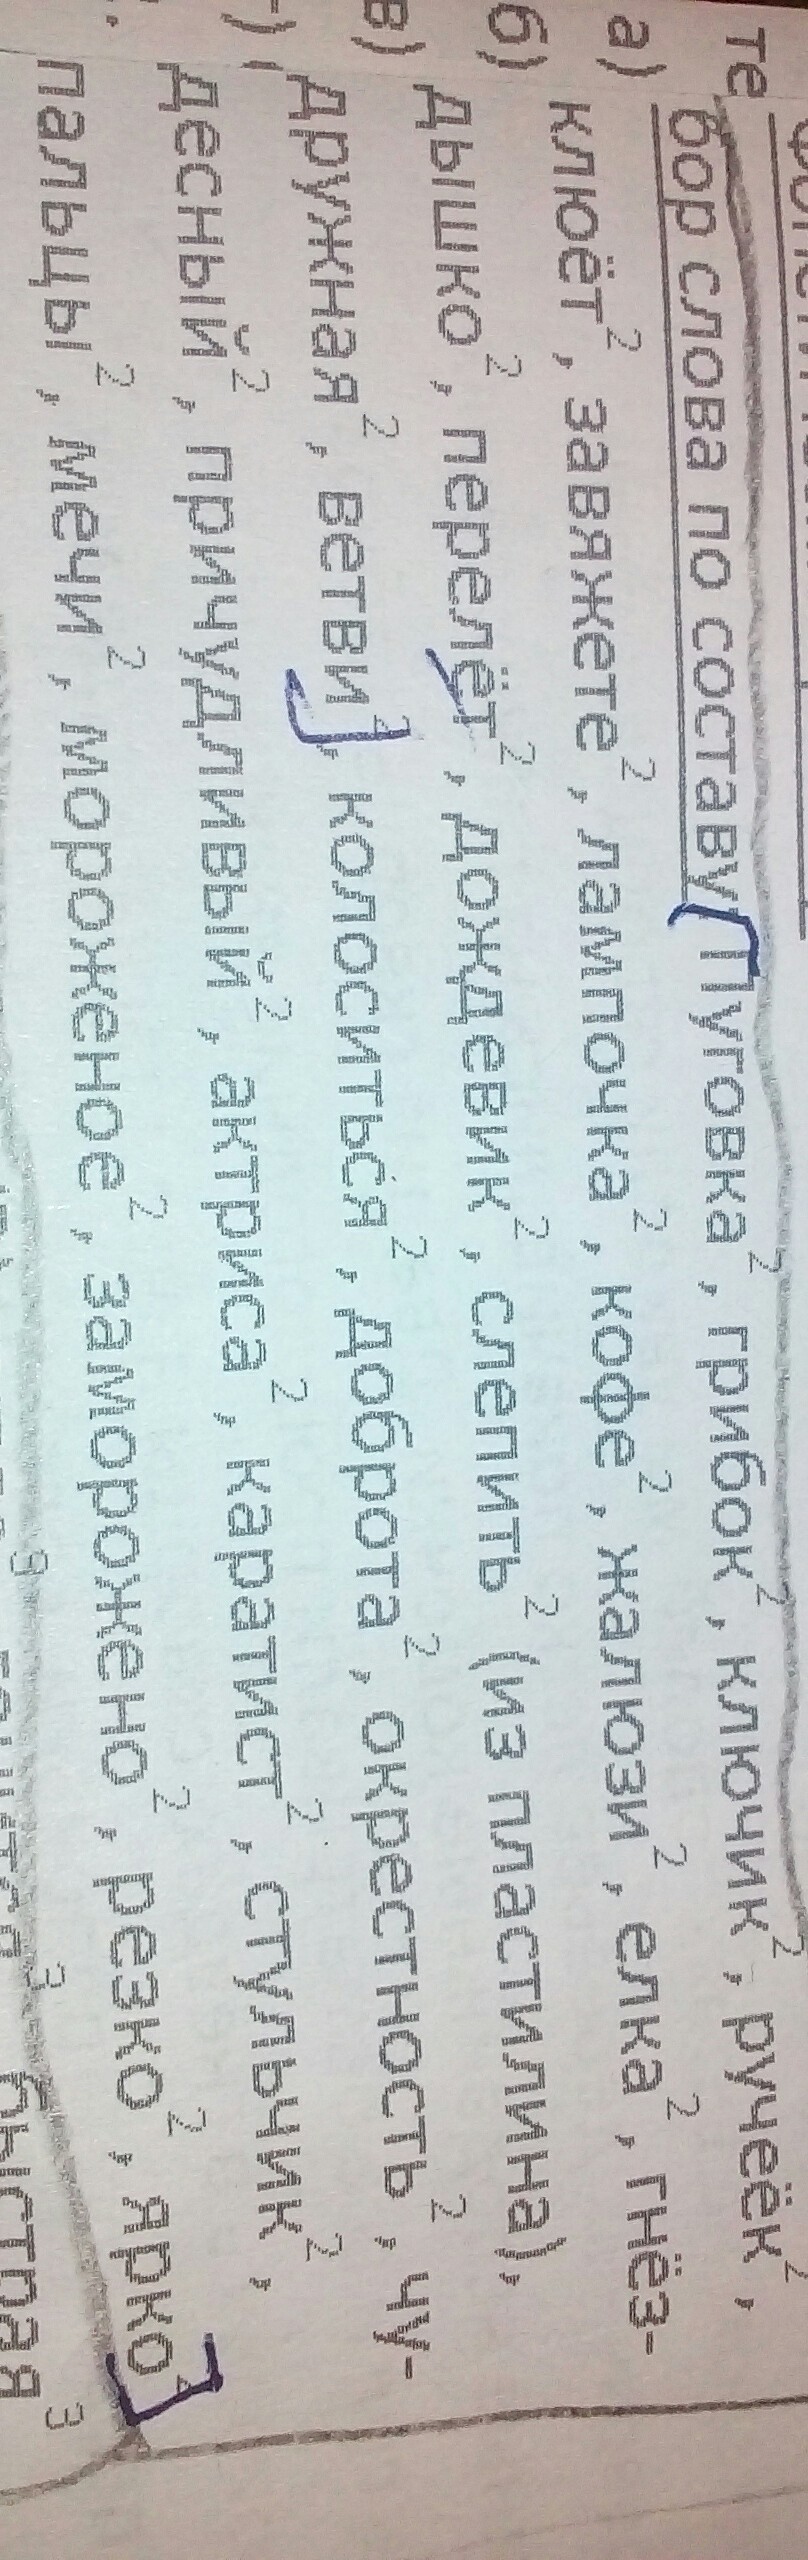 те
а) бор слова по составу Пуговка², грибок², ключик², ручеёк²,
б) клюёт², завяжете², лампочка², кофе², жалюзи², елка², гнёз-
в) дышко², перелёт², дождевик², слепить² (из пластилина),
дружная², ветви², колоситься², доброта², окрестность², чу-
десный², причудливый², актриса², каратист², стульчик²,
пальцы², мечи², мороженое², заморожено², резко², ярко
быстрая³